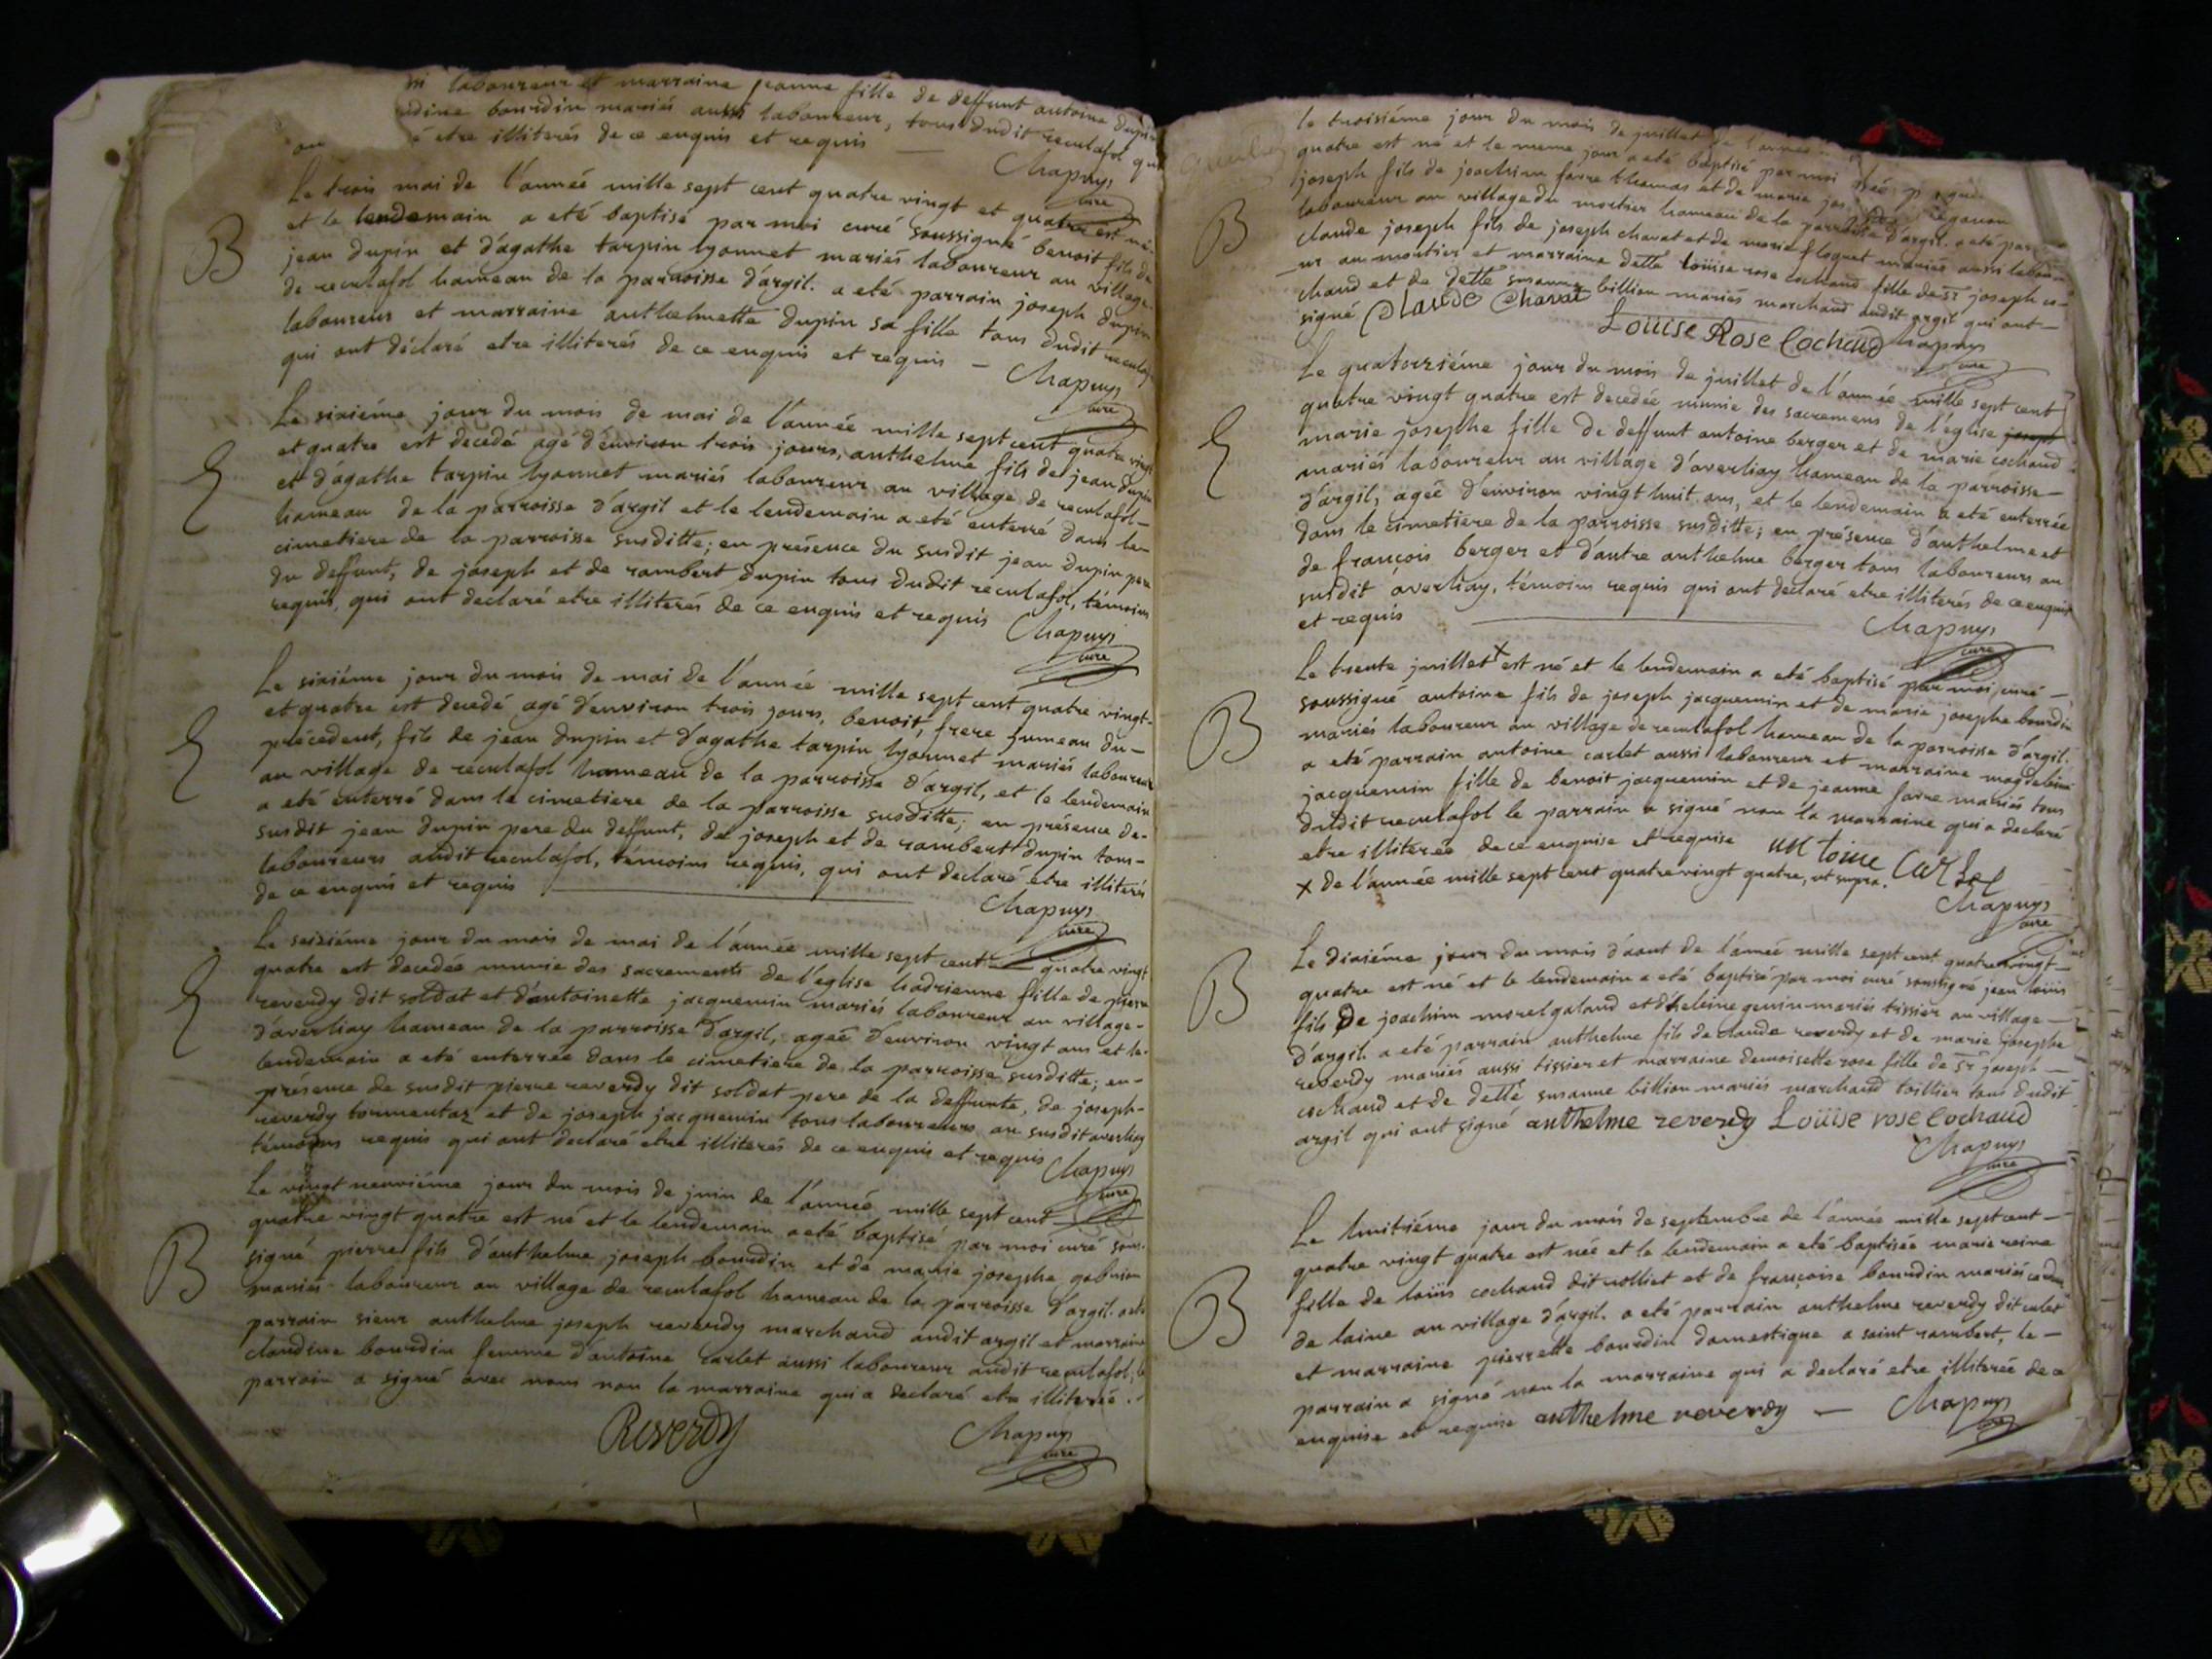 laboureur et marraine jeanne fille de deffunt antoine dupin
bourdin mariés aussi laboureur, tous dudit reculafol qui
ont
etre illiterés de ce enquis et requis —
Chapuys
curé
Le trois mai de l'année mille sept cent quatre vingt et quatre est né
et le lendemain a eté baptisé par moi curé soussigné benoit fils de
B
jean dupin et d'agathe tarpin lyonnet mariés laboureur au village
de reculafol hameau de la parroisse d'argil. a eté parrain joseph dupin
laboureur et marraine anthelmette dupin sa fille tous dudit reculafol
qui ont déclaré etre illiterés de ce enquis et requis —
Chapuys
curé
Le sixiéme jour du mois de mai de l'année mille sept cent quatre vingt
et quatre est decedé agé d'environ trois jours, anthelme fils de jean dupin
et d'agathe tarpin lyonnet mariés laboureur au village de reculafol —
hameau de la parroisse d'argil et le lendemain a eté enterré dans le
cimetiere de la parroisse susditte; en présence du susdit jean dupin pere
du deffunt, de joseph et de rambert dupin tous dudit reculafol, témoins
requis, qui ont declaré etre illiterés de ce enquis et requis
Chapuys
curé
Le sixiéme jour du mois de mai de l'année mille sept cent quatre vingt-
et quatre est decedé agé d'environ trois jours, benoit, frere jumeau du —
précedent, fils de jean dupin et d'agathe tarpin lyonnet mariés laboureur
au village de reculafol hameau de la parroisse d'argil, et le lendemain
a eté enterré dans le cimetiere de la parroisse susditte; en présence de-
susdit jean dupin pere du deffunt, de joseph et de rambert dupin tous-
laboureurs audit reculafol, témoins requis, qui ont declaré etre illiterés
de ce enquis et requis
Chapuys
curé
Le seiziéme jour du mois de mai de l'année mille sept cent — quatre vingt
quatre est decedée munie des sacrements de l'église hadrienne fille de pierre
reverdy dit soldat et d'antoinette jacquemin mariés laboureur au village-
d'averliay hameau de la parroisse d'argil, agée d'environ vingt ans et le-
lendemain a eté enterrée dans le cimetiere de la parroisse susditte; en-
présence de susdit pierre reverdy dit soldat pere de la deffunte, de joseph-
reverdy tormentaz et de joseph jacquemin tous laboureurs au susdit averliay
témoins requis qui ont declaré etre illiterés de ce enquis et requis
Chapuys
curé
Le vingt neuviéme jour du mois de juin de l'année mille sept cent
quatre vingt quatre est né et le lendemain a eté baptisé par moi curé sous-
B
signé pierre fils d'anthelme joseph bourdin et de marie josephe
mariés laboureur au village de reculafol hameau de la parroisse d'argil. a eté
parrain sieur anthelme joseph reverdy marchand audit argil et marraine
claudine bourdin femme d'antoine carlet aussi laboureur audit reculafol, le
parrain a signé avec nous non la marraine qui a declaré etre illiterée.
Reverdy
Chapuys
curé
le troisiéme jour du mois de juillet de l'année
quatre est né et le meme jour a eté baptisé par moi
joseph fils de joachim favre thomas et de marie
laboureur au village du moutier hameau de la parroisse d'argil. a eté parrain
B
claude joseph fils de joseph chavat et de marie floquet mariés aussi labour-
-ur au moutier et marraine delle loüise rose cochaud fille de sr joseph co-
chaud et de delle susanne billion mariés marchand audit argil qui ont —
signé Claude Chavat
Loüise Rose Cochaud
Chapuys
curé
Le quatorziéme jour du mois de juillet de l'année mille sept cent
quatre vingt quatre est decedée munie des sacremens de l'église joseph
marie josephe fille de deffunt antoine berger et de marie cochaud
mariés laboureur au village d'averliay hameau de la parroisse —
d'argil, agée d'environ vingt huit ans, et le lendemain a eté enterrée
dans le cimetiere de la parroisse susditte; en présence d'anthelme et
de françois berger et d'autre anthelme berger tous laboureurs au
susdit averliay, témoins requis qui ont declaré etre illiterés de ce enquis
et requis
Chapuys
curé
Le trente juillet x est né et le lendemain a eté baptisé par moi curé —
soussigné antoine fils de joseph jacquemin et de marie josephe bourdin
B
mariés laboureur au village de reculafol hameau de la parroisse d'argil.
a eté parrain antoine carlet aussi laboureur et marraine magdeleine
jacquemin fille de benoit jacquemin et de jeanne favre mariés tous
dudit reculafol le parrain a signé non la marraine qui a declaré
etre illiterée de ce enquise et requise antoine Carlet
x de l'année mille sept cent quatre vingt quatre, ut supra.
Chapuys
curé
Le dixiéme jour du mois d'aout de l'année mille sept cent quatre vingt —
B
quatre est né et le lendemain a eté baptisé par moi curé soussigné jean loüis
fils de joachim morel galand et d'heleine genin mariés tissier au village —
d'argil. a eté parrain anthelme fils de claude reverdy et de marie josephe
reverdy mariés aussi tissier et marraine demoiselle rose fille de sr joseph —
cochaud et de delle susanne billion mariés marchand toillier tous dudit
argil qui ont signé anthelme reverdy Loüise rose Cochaud
Chapuys
curé
Le huitiéme jour du mois de septembre de l'année mille sept cent —
quatre vingt quatre est née et le lendemain a eté baptisée marie reine
B
fille de loüis cochaud dit volliet et de françoise bourdin mariés cardeur
de laine au village d'argil. a eté parrain anthelme reverdy dit culet
et marraine pierrette bourdin domestique a saint rambert, le —
parrain a signé non la marraine qui a declaré etre illiterée de ce
enquise et requise anthelme reverdy — Chapuys
curé